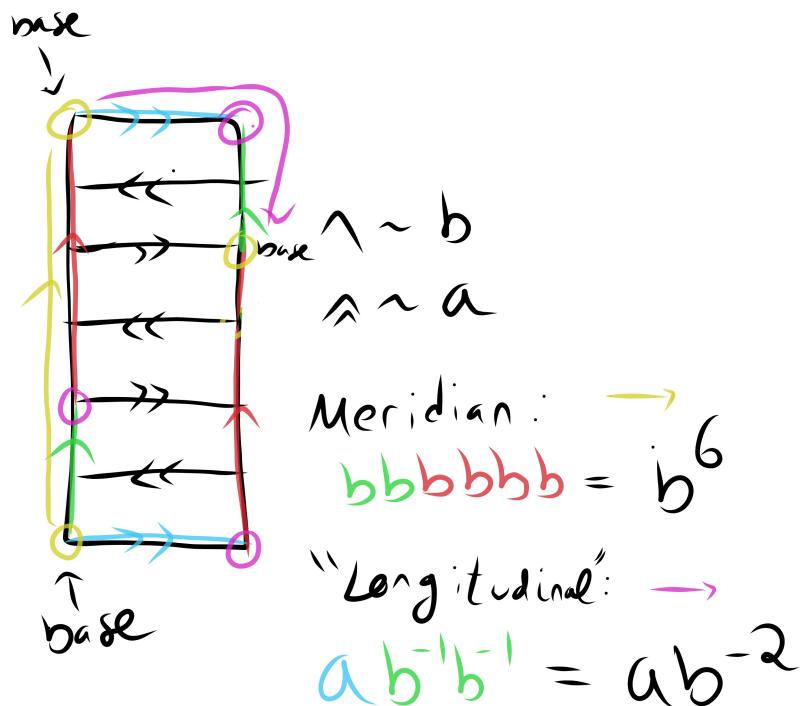 base
base
base
∧ ~ b
⩕ ~ a
Meridian: →
bbbbbb = b⁶
"Longitudinal": →
ab⁻¹b⁻¹ = ab⁻²